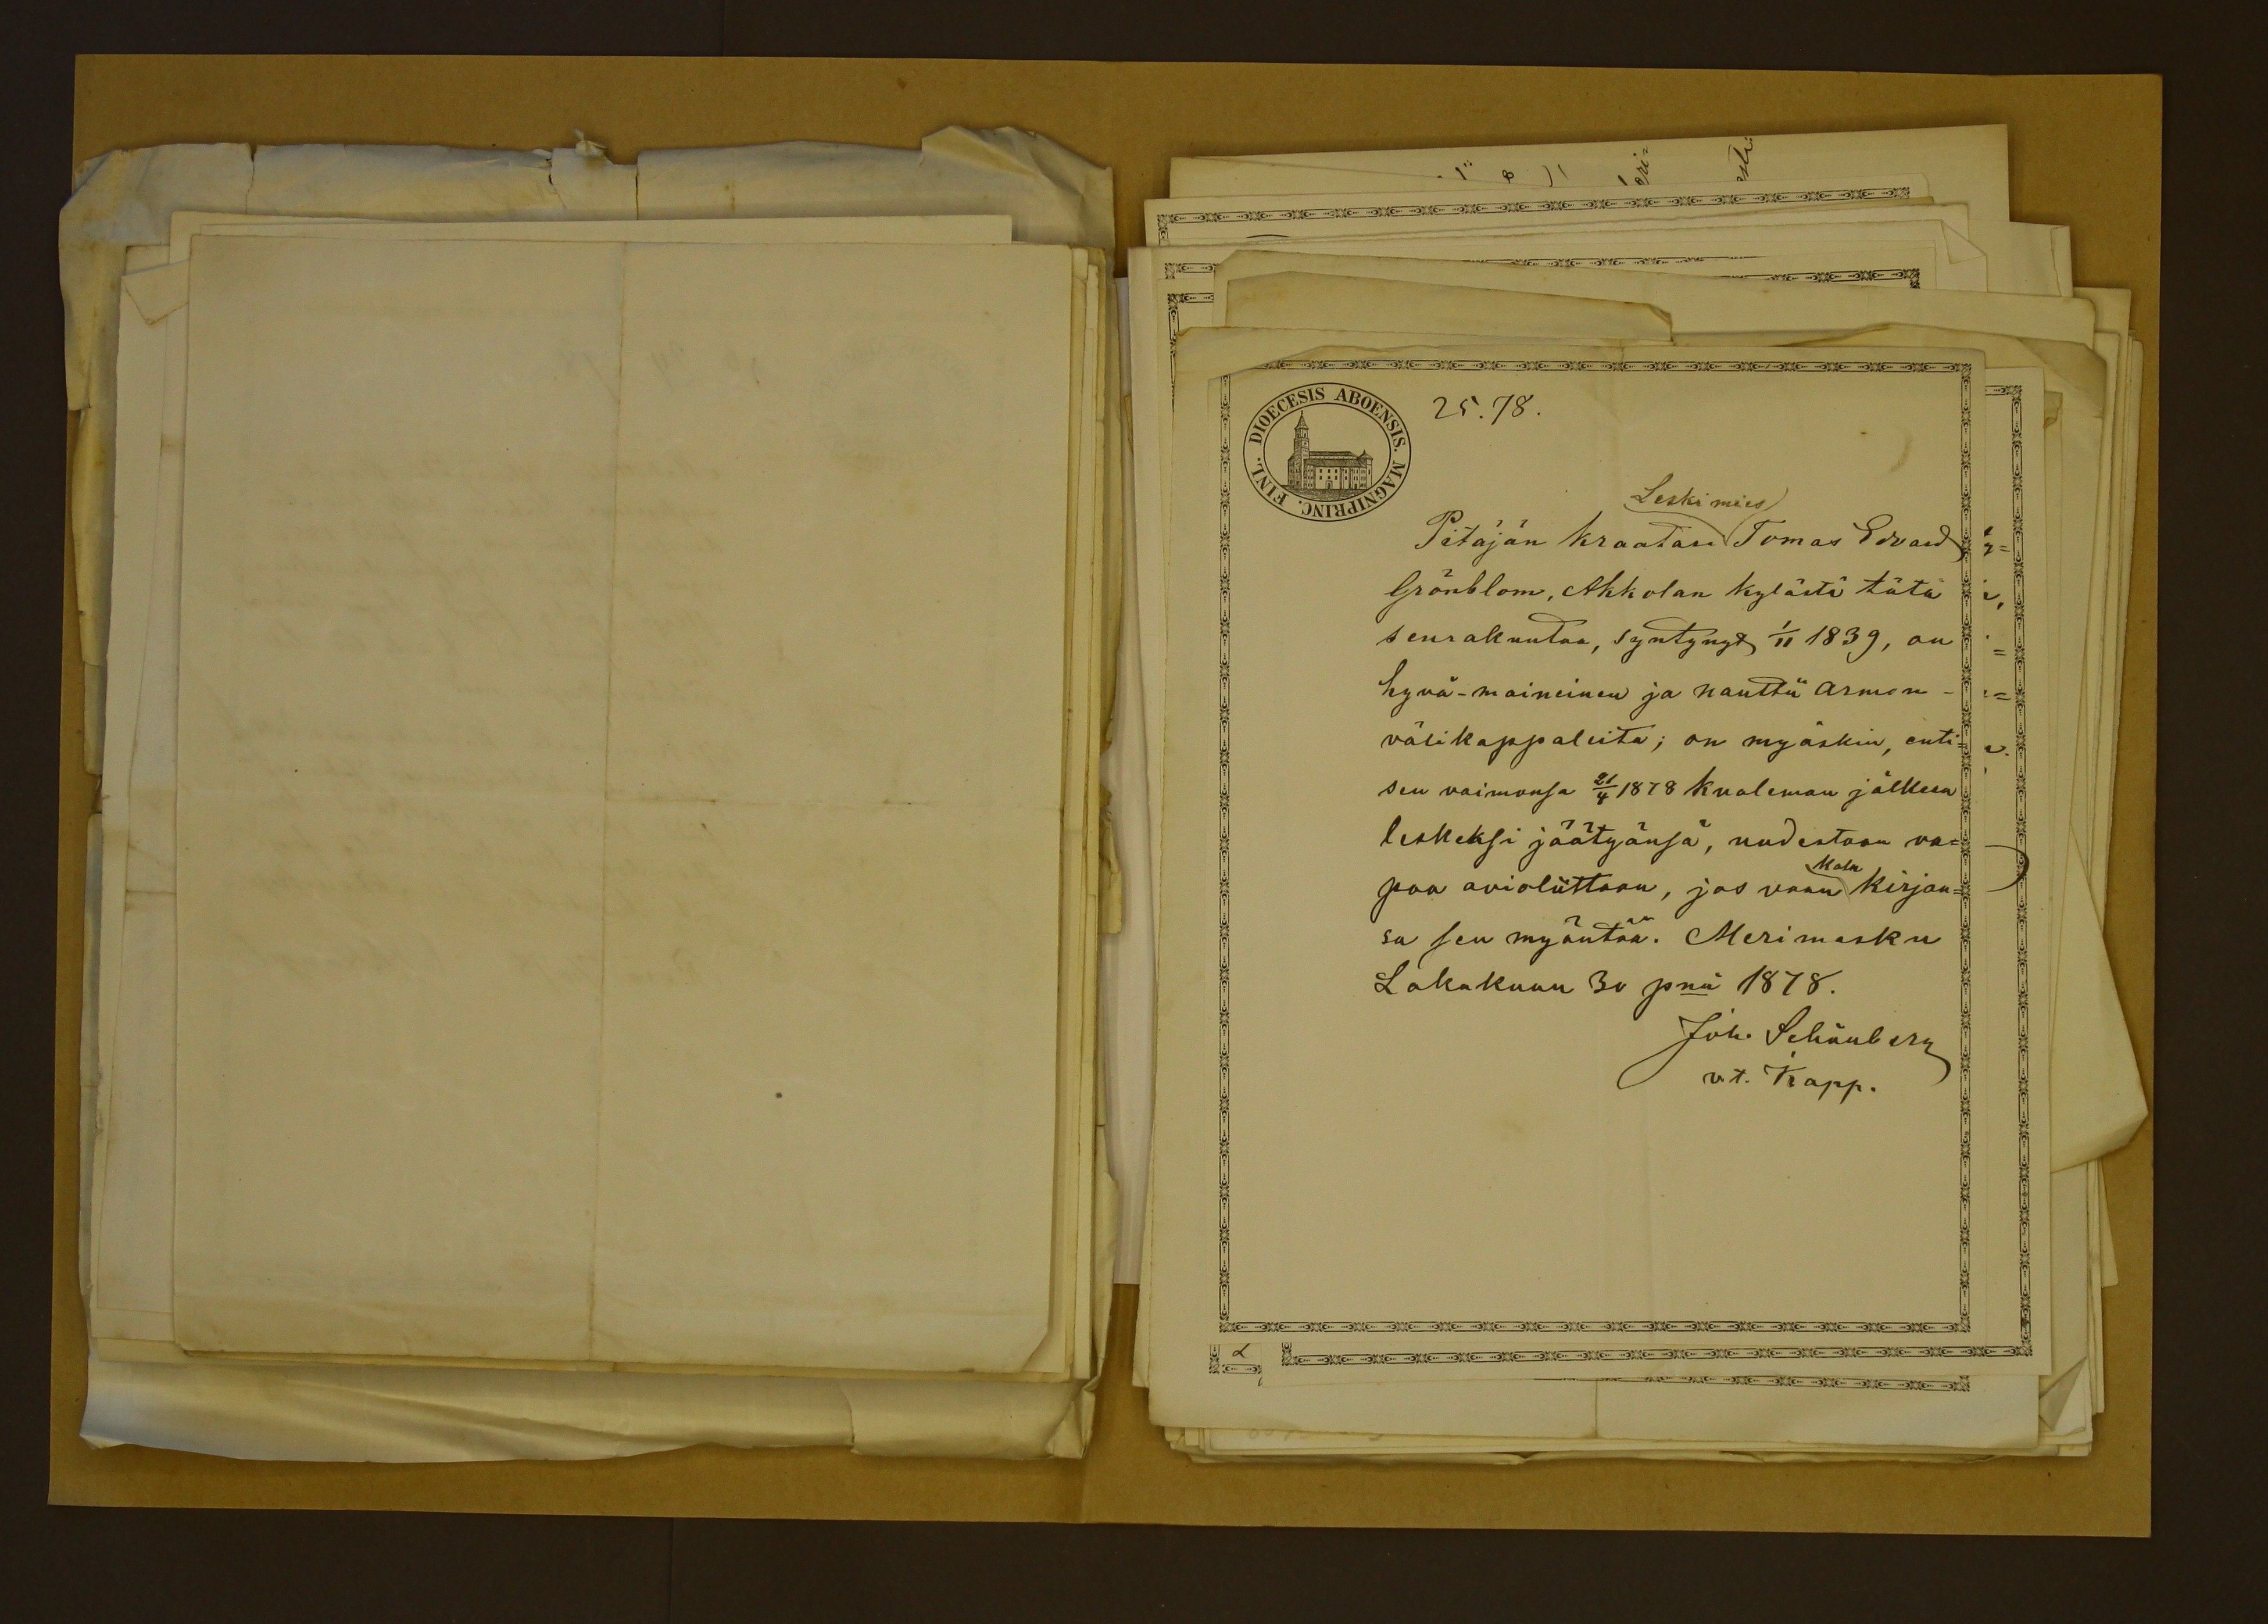 DIOECESIS ABOENSIS. MAGNIPRINC. FINL.
25.78.
Leskimies
Pitäjän kraatari Tomas Edvard
Grönblom, Akkolan kylästä tätä
seurakuntaa, syntynyt 1/11 1839, on
hyvä-maineinen ja nauttii armon-
välikappaleita; on myöskin, enti=
sen vaimonsa 21/4 1878 kuoleman jälkeen
leskeksi jäätyänsä, uudestaan va=
paa avioliittoon, jos vaan kirjan=
sa sen myöntää. Merimasku
Lokakuun 30 pnä 1878.
Joh. Schönberg
v.t. Kapp.